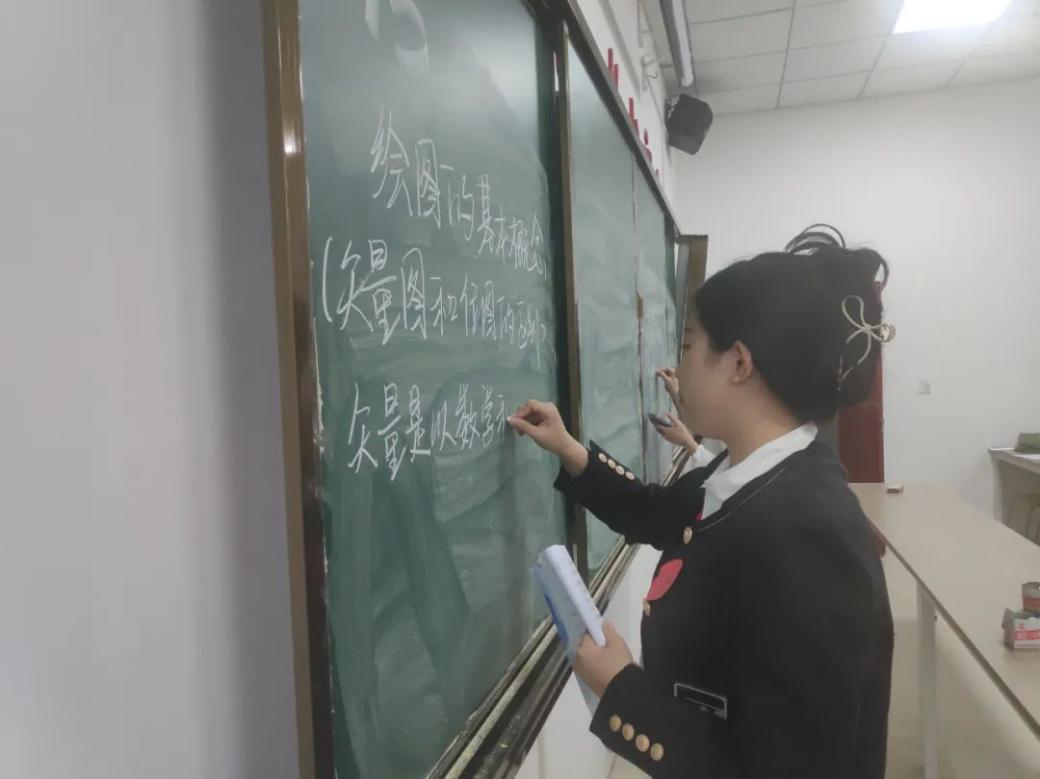 绘图的基本概念
(矢量图和位图的区别)
矢量是以数学